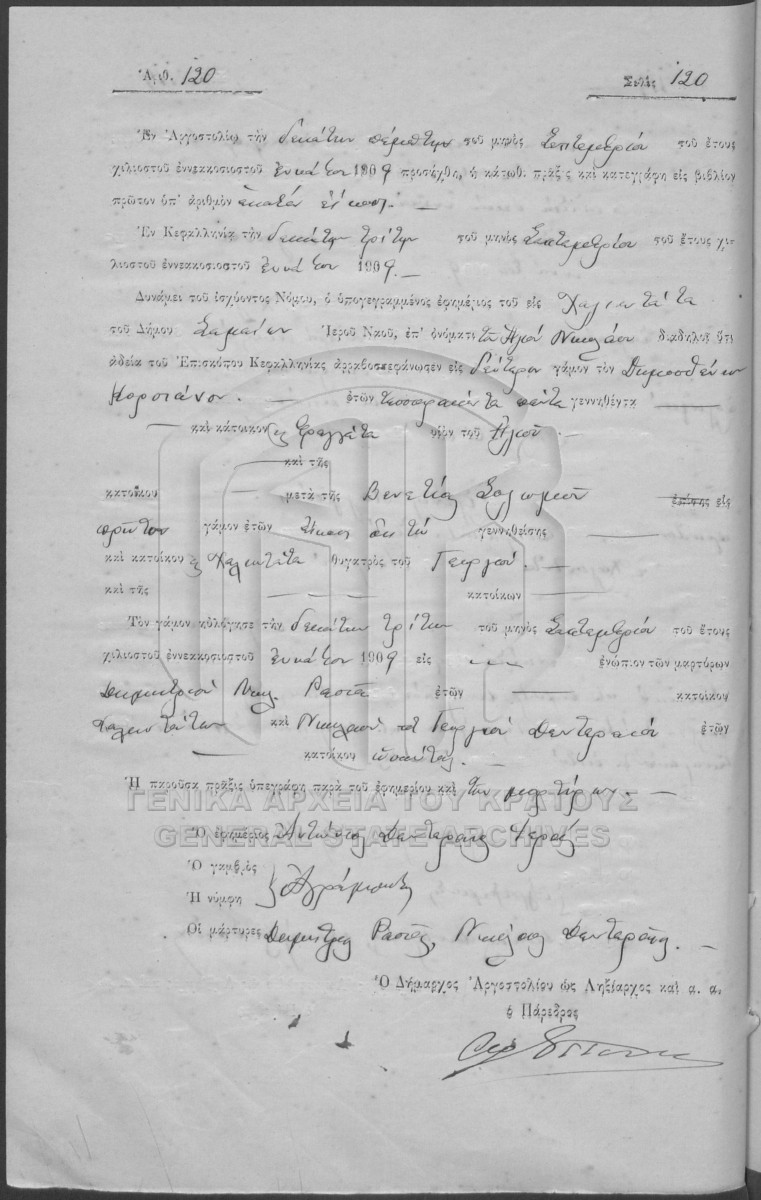 Ἀριθ. 120 Σελὶς 120
Ἐν Ἀργοστολίῳ τὴν δεκάτην πέμπτην τοῦ μηνὸς Σεπτεμβρίου τοῦ ἔτους
χιλιοστοῦ ἐννεακοσιοστοῦ ἐννάτου 1909 προσήχθη, ἡ κάτωθι πρᾶξις καὶ κατεγράφη εἰς βιβλίον
πρῶτον ὑπ' ἀριθμὸν ἑκατὸν εἴκοσι. —
Ἐν Κεφαλληνίᾳ τὴν δεκάτην τρίτην τοῦ μηνὸς Σεπτεμβρίου τοῦ ἔτους χι-
λιοστοῦ ἐννεακοσιοστοῦ ἐννάτου 1909. —
Δυνάμει τοῦ ἰσχύοντος Νόμου, ὁ ὑπογεγραμμένος ἐφημέριος τοῦ εἰς
τοῦ Δήμου Σαμαίων Ἱεροῦ Ναοῦ, ἐπ' ὀνόματι τοῦ Ἁγίου Νικολάου διαδηλοῖ ὅτι
ἀδείᾳ τοῦ Ἐπισκόπου Κεφαλληνίας ἀρραβοστεφάνωσεν εἰς δεύτερον γάμον τὸν Δημοσθένην
ἐτῶν τεσσαράκοντα πέντε γεννηθέντα —
— καὶ κάτοικον εἰς Φραγκάτα υἱὸν τοῦ Ἠλιοῦ —
καὶ τῆς
κατοίκου — μετὰ τῆς Βενετίας Σολωμοῦ ἐπίσης εἰς
πρῶτον γάμον ἐτῶν εἴκοσι ὀκτὼ γεννηθείσης —
καὶ κατοίκου εἰς θυγατρὸς τοῦ Γεωργίου. —
καὶ τῆς — — κατοίκων —
Τὸν γάμον ηὐλόγησε τὴν δεκάτην τρίτην τοῦ μηνὸς Σεπτεμβρίου τοῦ ἔτους
χιλιοστοῦ ἐννεακοσιοστοῦ ἐννάτου 1909 εἰς ἐνώπιον τῶν μαρτύρων
Δημητρίου Νικ. Ρασιᾶ ἐτῶν — κατοίκου
καὶ Νικολάου τοῦ Γεωργίου Δενδρινοῦ ἐτῶν
— κατοίκου
Ἡ παροῦσα πρᾶξις ὑπεγράφη παρὰ τοῦ ἐφημερίου καὶ τῶν μαρτύρων. —
ΓΕΝΙΚΑ ΑΡΧΕΙΑ ΤΟΥ ΚΡΑΤΟΥΣ
GENERAL STATE ARCHIVES
Ὁ ἐφημέριος Ἀντώνιος Ἱερεύς
Ὁ γαμβρὸς
Ἡ νύμφη } Ἀγράμματοι
Οἱ μάρτυρες Δημήτριος Ρασιᾶς, Νικόλαος —
Ὁ Δήμαρχος Ἀργοστολίου ὡς Ληξίαρχος καὶ α. α.
ὁ Πάρεδρος